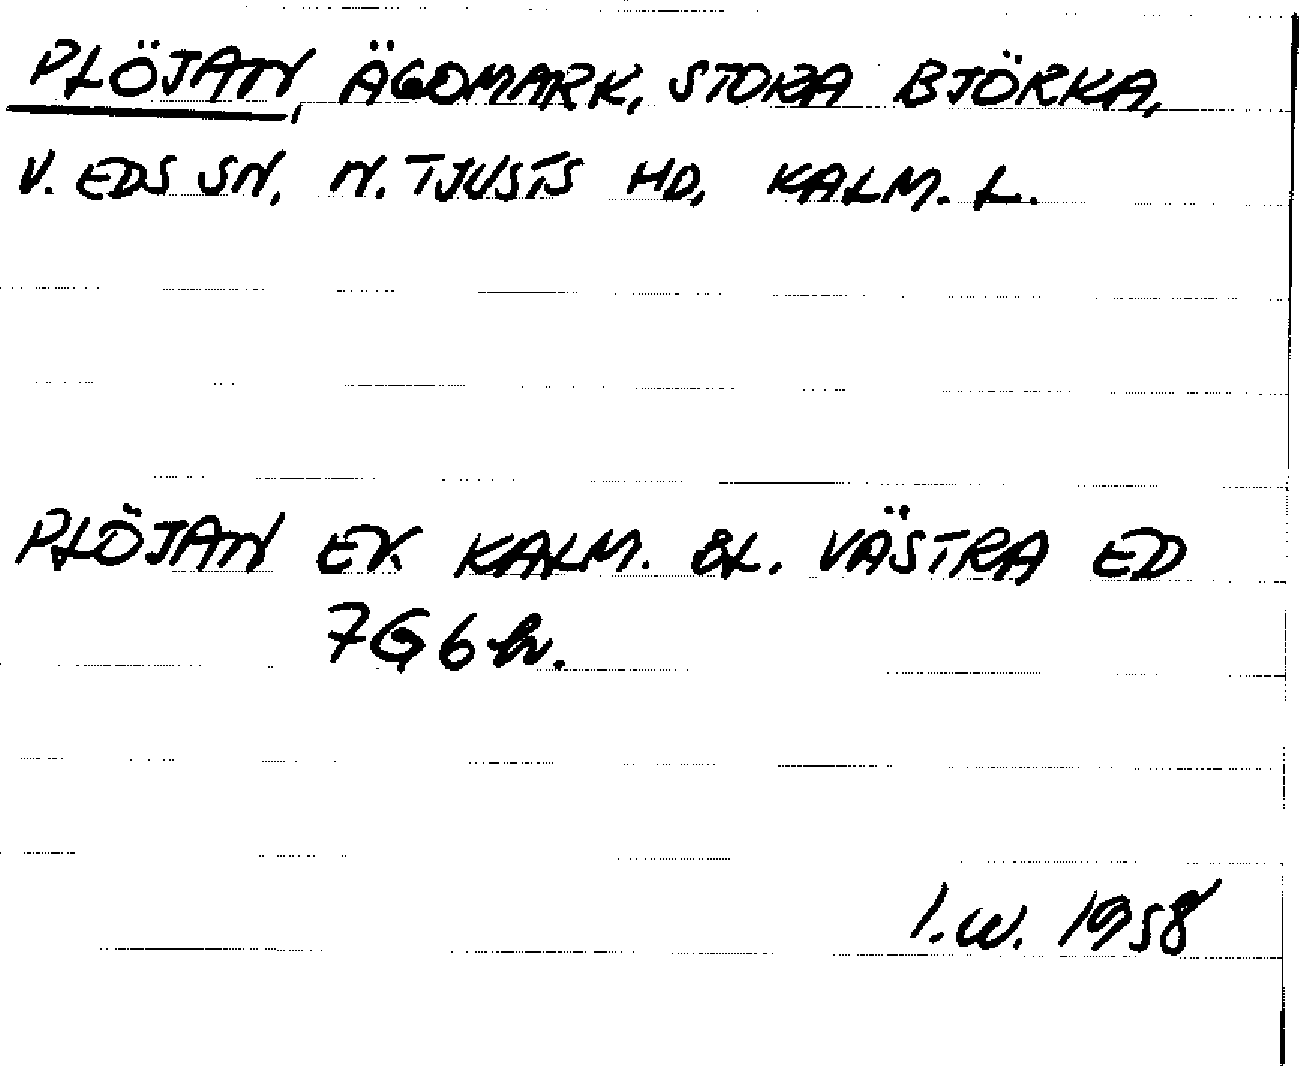 PLÖJAN, ÄGOMARK, STORA BJÖRKA,
V. EDS SN, N. TJUSTS HD, KALM. L.
PLÖJAN EK KALM. BL. VÄSTRA ED
7G6h.
I.W. 1958